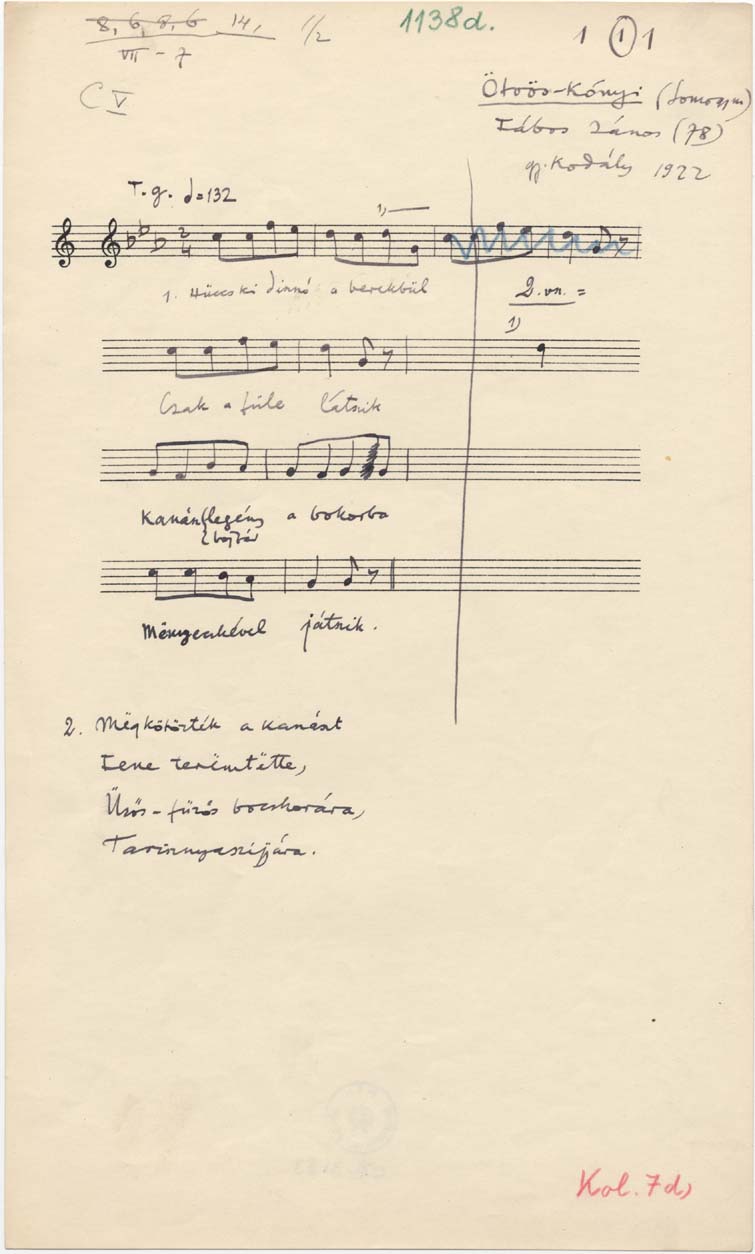 8, 6, 8, 6 14, 1/2
VII - 7
1138d.
1 1 1
C V
Ötvös-Kónyi (Somogy m)
Tábos János (78)
gy. Kodály 1922
T. g. ♩=132
2
4
1)
1. Hücs ki disznó a berekbül
2. vsz. =
1)
Csak a füle látszik
Kanászlegény a bokorba
bojtár
Mënyecskével játszik.
2. Mëgkötözték a kanászt
Iene terëmtëtte,
Űzős-fűzős bocskorára,
Tarisznyaszijjára.
Kol. 7d)